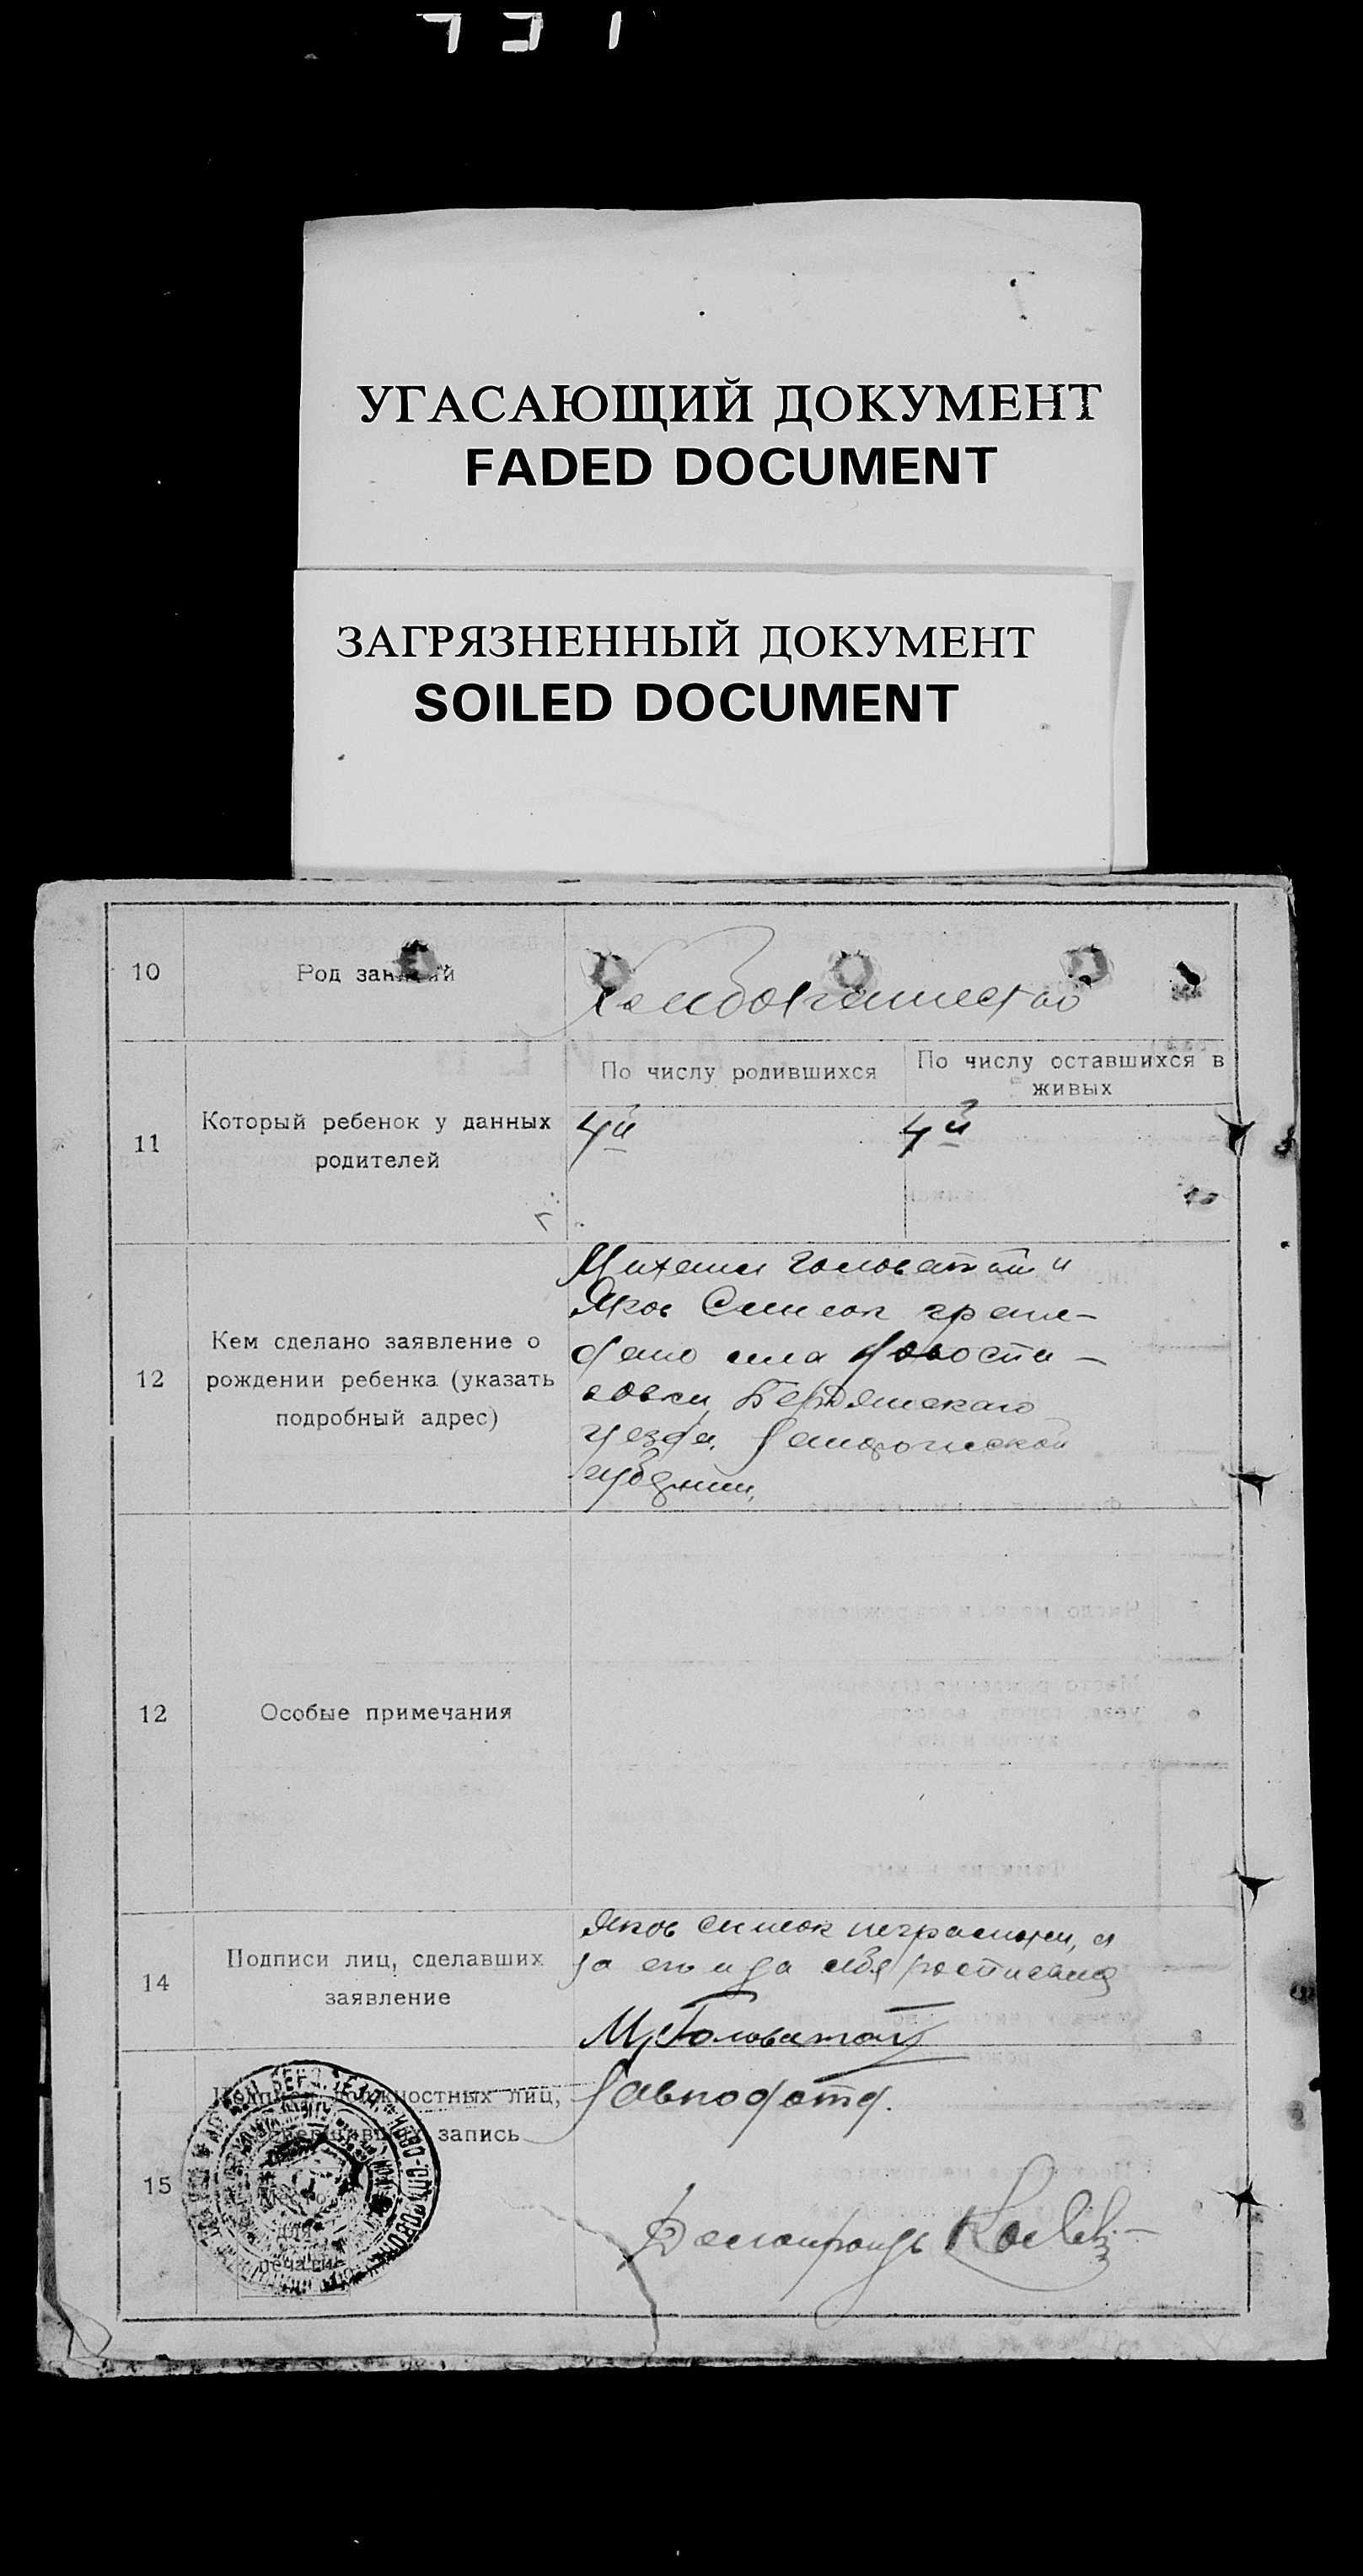 УГАСАЮЩИЙ ДОКУМЕНТ
FADED DOCUMENT
ЗАГРЯЗНЕННЫЙ ДОКУМЕНТ
SOILED DOCUMENT
10
Род занятий
Хлебопашество
11
Который ребенок у данных
родителей
По числу родившихся
По числу оставшихся в
живых
4й
4й
12
Кем сделано заявление о
рождении ребенка (указать
подробный адрес)
Михаил Головатый и
Яков Симсон граж-
дане села Новоспа-
совки Бердянского
уезда, Запорожской
губернии,
12
Особые примечания
14
Подписи лиц, сделавших
заявление
Яков неграмотен, а
за его и за себя росписался
М. Головатый
15
Подписи должностных лиц,
совершивших запись
Место
для
печати
Завподотд.
Делопроизв.